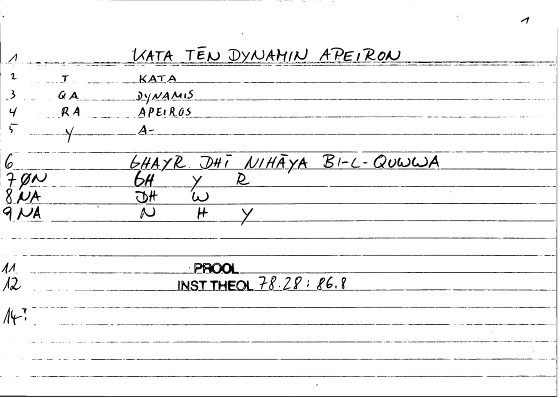 1
1 KATA TĒN DYNAMIN APEIRON
2 T KATA
3 QA DYNAMIS
4 RA APEIROS
5 Y A-
6 GHAYR DHĪ NIHĀYA BI-L-QUWWA
7 ØN GH Y R
8 NA DH W
9 NA N H Y
11 PROOL
12 INST THEOL 78.28 : 86.8
14